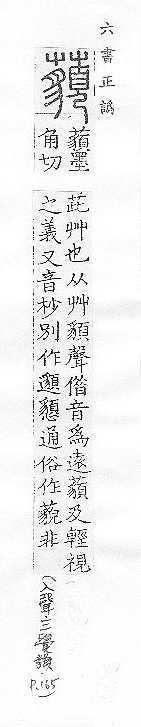 六書正譌
墨
角切
茈艸也从艸䫉聲偕音爲遠及輕視
之義又音杪別作通俗作藐非
(入聲三覺韻
P.165)